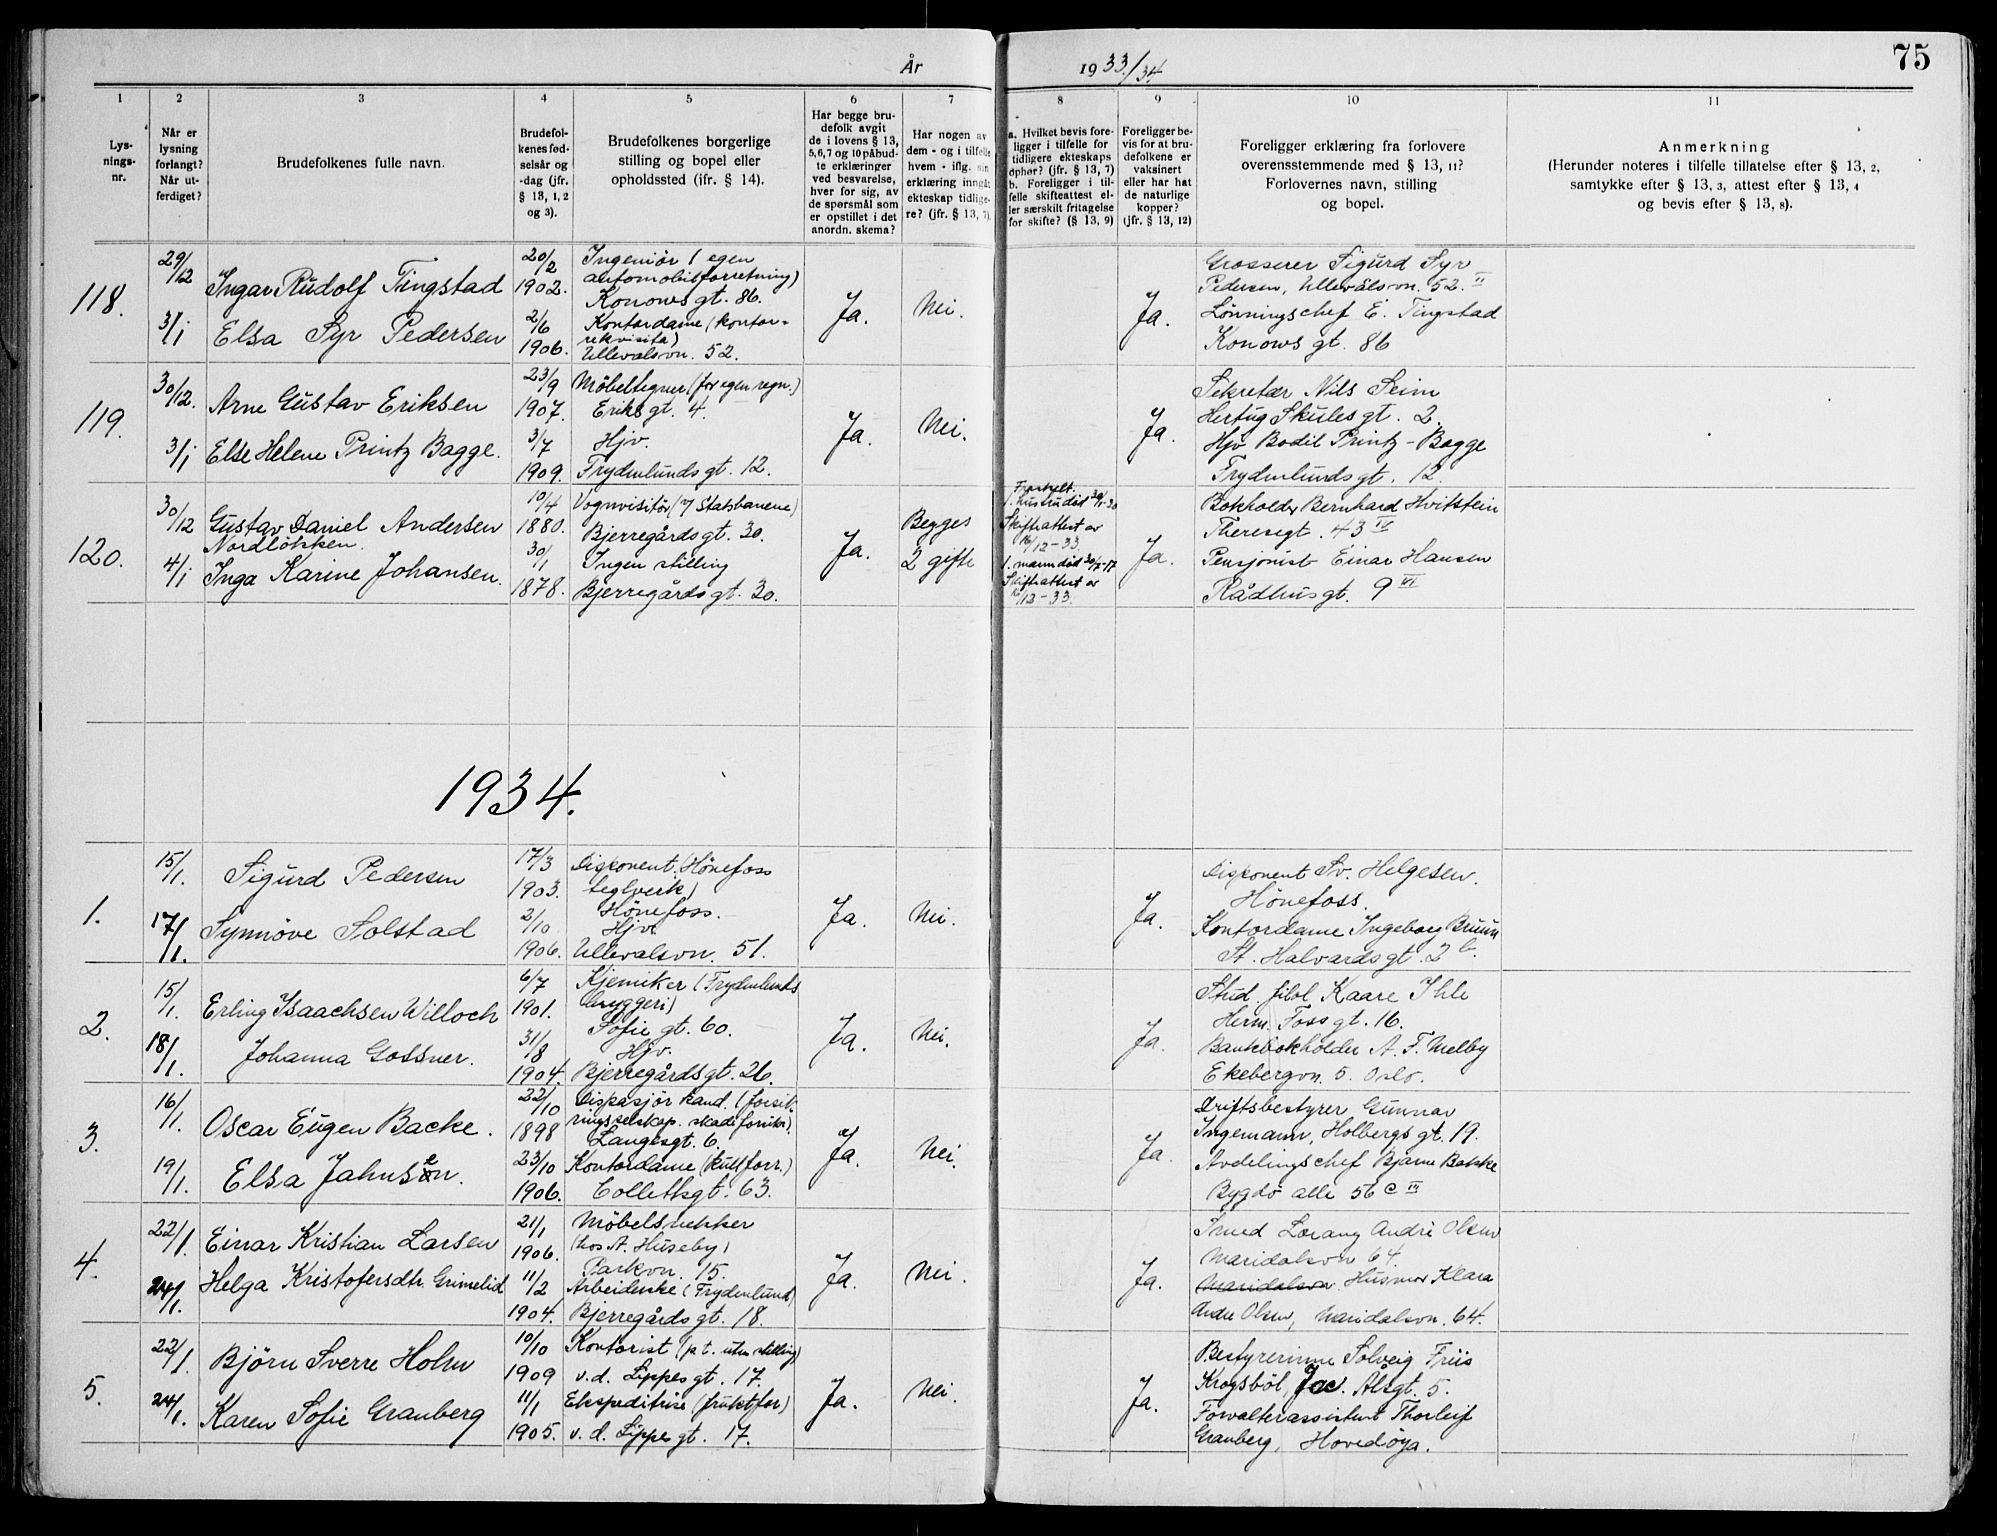 75
År 1933/34
1 2 3 4 5 6 7 8 9 10 11
Lys-
nings-
nr.
Når er
lysning
forlangt?
Når ut-
ferdiget?
Brudefolkenes fulle navn.
Brudefol-
kenes fød-
selsår og
-dag (jfr.
§ 13, 1, 2
og 3).
Brudefolkenes borgerlige
stilling og bopel eller
opholdssted (jfr. § 14).
Har begge bru-
defolk avgit
de i lovens § 13,
5,6,7 og 10 påbud-
te erklæringer
ved besvarelse,
hver for sig, av
de spørsmål som
er opstillet i det
anordn. skema?
Har nogen av
dem - og i tilfelle
hvem - iflg. sin
erklæring inngåt
ekteskap tidlige-
re? (jfr. § 13, 7).
a. Hvilket bevis fore-
ligger i tilfelle for
tidligere ekteskaps
ophør? (jfr. § 13, 7)
b. Foreligger i til-
felle skifteattest el-
ler særskilt fritagelse
for skifte? (§ 13, 9)
Foreligger be-
vis for at bru-
defolkene er
vaksinert
eller har hat
de naturlige
kopper?
(jfr. § 13, 12)
Foreligger erklæring fra forlovere
overensstemmende med § 13, 11?
Forlovernes navn, stilling
og bopel.
Anmerkning
(Herunder noteres i tilfelle tillatelse efter § 13, 2,
samtykke efter § 13, 3, attest efter § 13, 4
og bevis efter § 13, 8).
118.
29/12
3/1
Ingar Rudolf Tingstad
Elsa Syr Pedersen
20/2
1902.
2/6
1906.
Ingeniør (egen
automobilforretning)
Konows gt. 86.
Kontordame (kontor-
rekvisita)
Ullevålsvn. 52.
Ja.
Nei.
Ja.
Grosserer Sigurd Syr
Pedersen, Ullevålsvn. 52. II
Lönningschef E. Tingstad
Konows gt. 86
119.
30/12.
3/1
Arne Gustav Eriksen
Else Helene Printz Bagge.
23/9
1907.
3/7
1909.
Möbeltegner (for egen regn.)
Eriks gt. 4.
Hjv.
Frydenlundsgt. 12.
Ja.
Nei.
Ja.
Sekretær Nils Seim
Hertug Skules gt. 2.
Hjv. Bodil Printz-Bagge
Frydenlundsgt. 12.
120.
30/12
4/1
Gustav Daniel Andersen
Nordlökken.
Inga Karine Johansen.
10/4
1880.
30/1
1878.
Vognvisitör (v/ Statsbanene)
Bjerregårdsgt. 30.
Ingen stilling
Bjerregårdsgt. 30.
Ja.
Begges
2 gifte
Skifteattest av
16/12-33.
Skifteattest av
16/12-33.
Ja.
Bokholder Bernhard Hvitstein
Theresegt. 43 IV
Pensjonist Einar Hansen
Rådhusgt. 9 VI
1934.
1.
15/1.
17/1.
Sigurd Pedersen
Synnöve Solstad
17/3
1903.
2/10
1906.
Disponent (Hönefoss
teglverk)
Hönefoss.
Hjv.
Ullevålsvn. 51.
Ja.
Nei.
Ja.
Disponent Sv. Helgesen.
Hönefoss.
Kontordame Ingeborg Bruun
St. Halvards gt. 2 b.
2.
15/1.
18/1.
Erling Isaachsen Willoch
Johanna Gossner.
6/7
1901.
31/8
1904.
Kjemiker (Frydenlunds
bryggeri)
Sofie gt. 60.
Hjv.
Bjerregårdsgt. 26.
Ja.
Nei.
Ja.
Stud. filol Kaare Ihle
Herm. Foss gt. 16.
Bankbokholder A. F. Melby
Ekebergvn. 5. Oslo.
3.
16/1.
19/1.
Oscar Eugen Backe.
Elsa Jahnsen.
22/10
1898
23/10
1906.
Dispasjör kand. (forsik-
ringsselskap. skadeforsikr.)
Langesgt. 6.
Kontordame (kullforr.)
Collettsgt. 63.
Ja.
Nei.
Ja.
Driftsbestyrer Gunnar
Ingemann, Holbergs gt. 19.
Avdelingschef Bjarne Bakke
Bygdö alle 56 c III
4.
22/1.
24/1.
Einar Kristian Larsen
Helga Kristofersdtr Grimelid
21/1
1906.
11/2
1904.
Möbelsnekker
(hos A. Huseby)
Parkvn. 15.
Arbeiderske (Frydenlund)
Bjerregårdsgt. 18.
Ja.
Nei.
Ja.
Smed Lorang André Olsen
Maridalsvn 64.
Maridalsvn. Husmor Klara
Andre Olsen, Maridalsvn. 64.
5.
22/1.
24/1.
Björn Sverre Holm
Karen Sofie Granberg
10/10
1909
11/1
1905.
Kontorist (p.t. uten stilling)
v.d. Lippes gt. 17.
Ekspeditrise (fruktfor)
v.d. Lippes gt. 17.
Ja.
Nei.
Ja.
Bestyrerinne Solveig Friis
Krogsböl, Jac. Ålsgt. 5.
Forvalterassistent Thorleif
Granberg, Hovedöya.